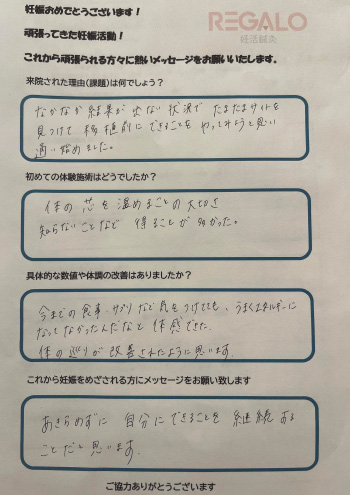 妊娠おめでとうございます！
REGALO
妊活鍼灸
頑張ってきた妊娠活動！
これから頑張られる方々に熱いメッセージをお願いいたします。
来院された理由(課題)は何でしょう？
なかなか結果が出ない状況で たまたまサイトを
見つけて 移植前にできることを やってみようと思い
通い始めました。
初めての体験施術はどうでしたか？
体の芯を温めることの大切さ
知らないことなど 得ることが多かった。
具体的な数値や体調の改善はありましたか？
今までの食事・サプリなど気をつけてても、うまくエネルギーに
なってなかったんだなと 体感できた。
体の巡りが改善されたように思います。
これから妊娠をめざされる方にメッセージをお願い致します
あきらめずに 自分にできることを 継続する
ことだと思います。
ご協力ありがとうございます